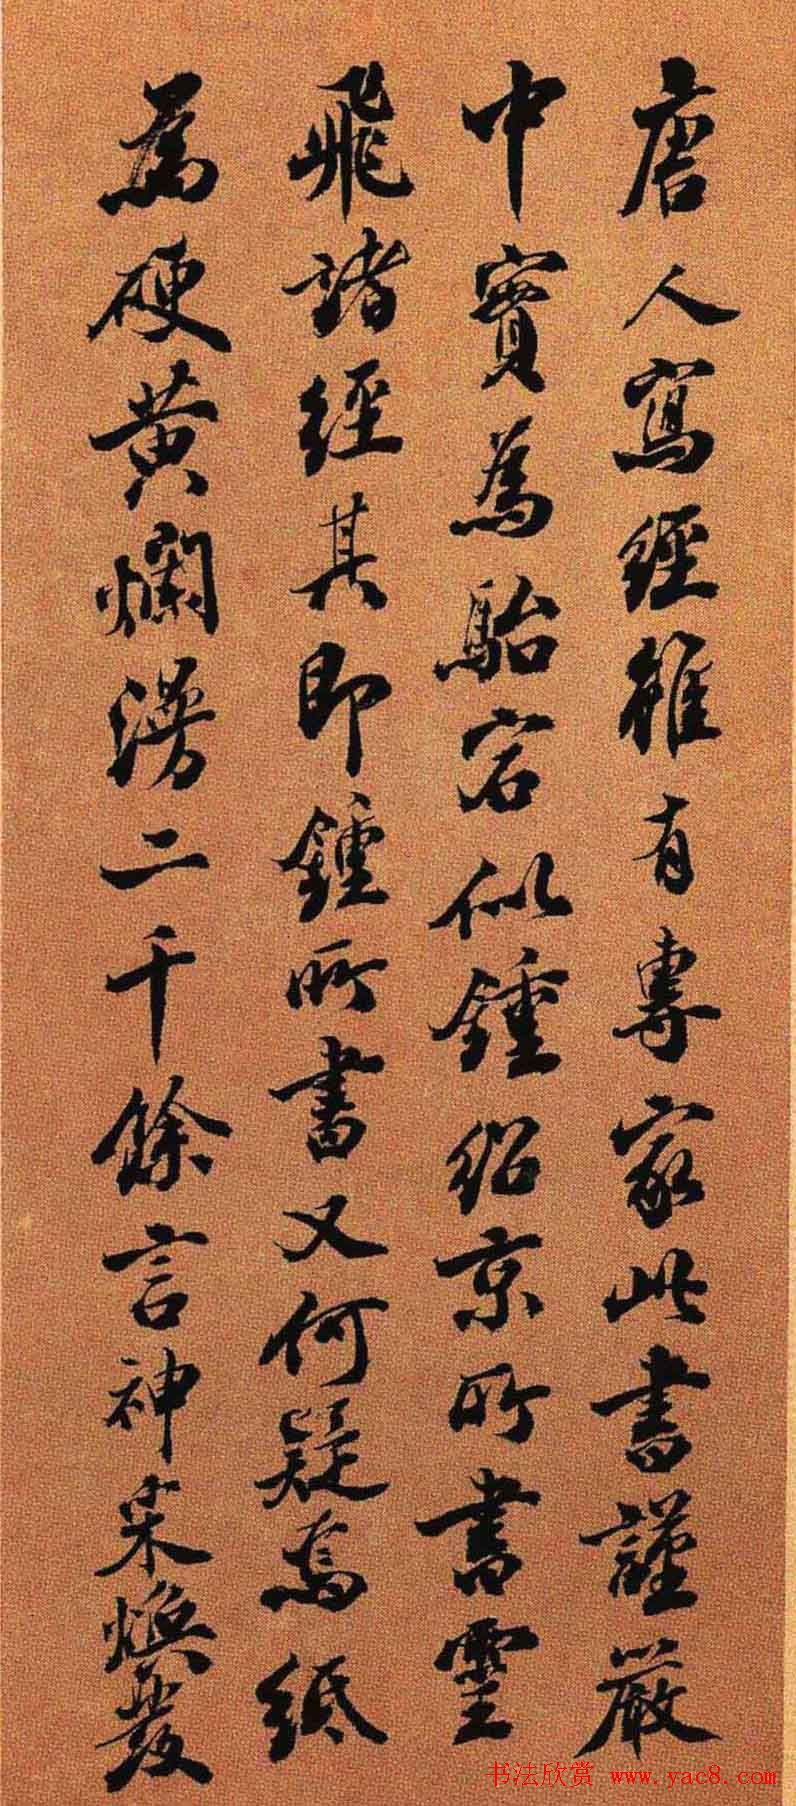 唐人寫經雖有專家此書謹嚴
中實為駘宕似鍾紹京所書靈
飛諸經其即鍾所書又何疑焉紙
為硬黄爛漫二千餘言神采煥發
书法欣赏 www.yac8.com